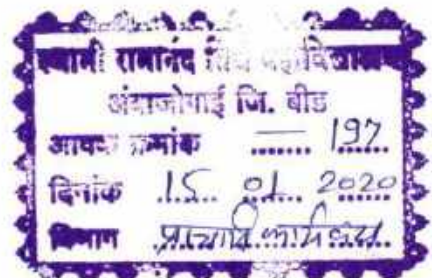 स्वामी रामानंद तीर्थ महाविद्यालय
अंबाजोगाई जि. बीड
आवक क्रमांक — 197
दिनांक 15 01 2020
विभाग